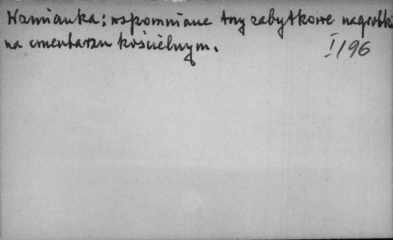 Kamianka: wspomniane trzy zabytkowe nagrobki
na cmentarzu kościelnym.
I/96